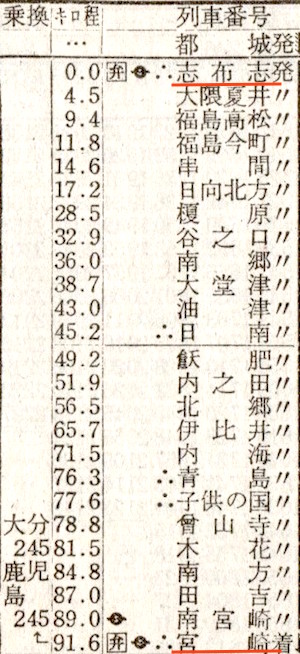 乗換 キロ程 列車番号
… 都城発
0.0 弁 ∴志布志発
4.5 大隈夏井〃
9.4 福島高松〃
11.8 福島今町〃
14.6 串間〃
17.2 日向北方〃
28.5 榎原〃
32.9 谷之口〃
36.0 南郷〃
38.7 大堂津〃
43.0 油津〃
45.2 ∴日南〃
49.2 飫肥〃
51.9 内之田〃
56.5 北郷〃
65.7 伊比井〃
71.5 内海〃
76.3 ∴青島〃
77.6 ∴子供の国〃
大分 78.8 曾山寺〃
245 81.5 木花〃
鹿児 84.8 南方〃
島 87.0 田吉〃
245 89.0 南宮崎〃
91.6 弁 ∴宮崎着